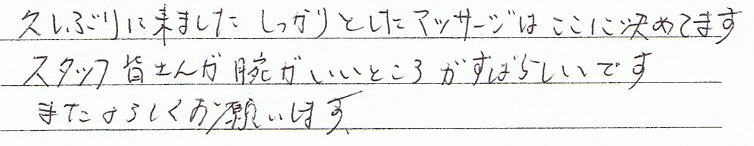 久しぶりに来ました しっかりとしたマッサージはここに決めてます
スタッフ皆さんが腕がいいところがすばらしいです
またよろしくお願いします